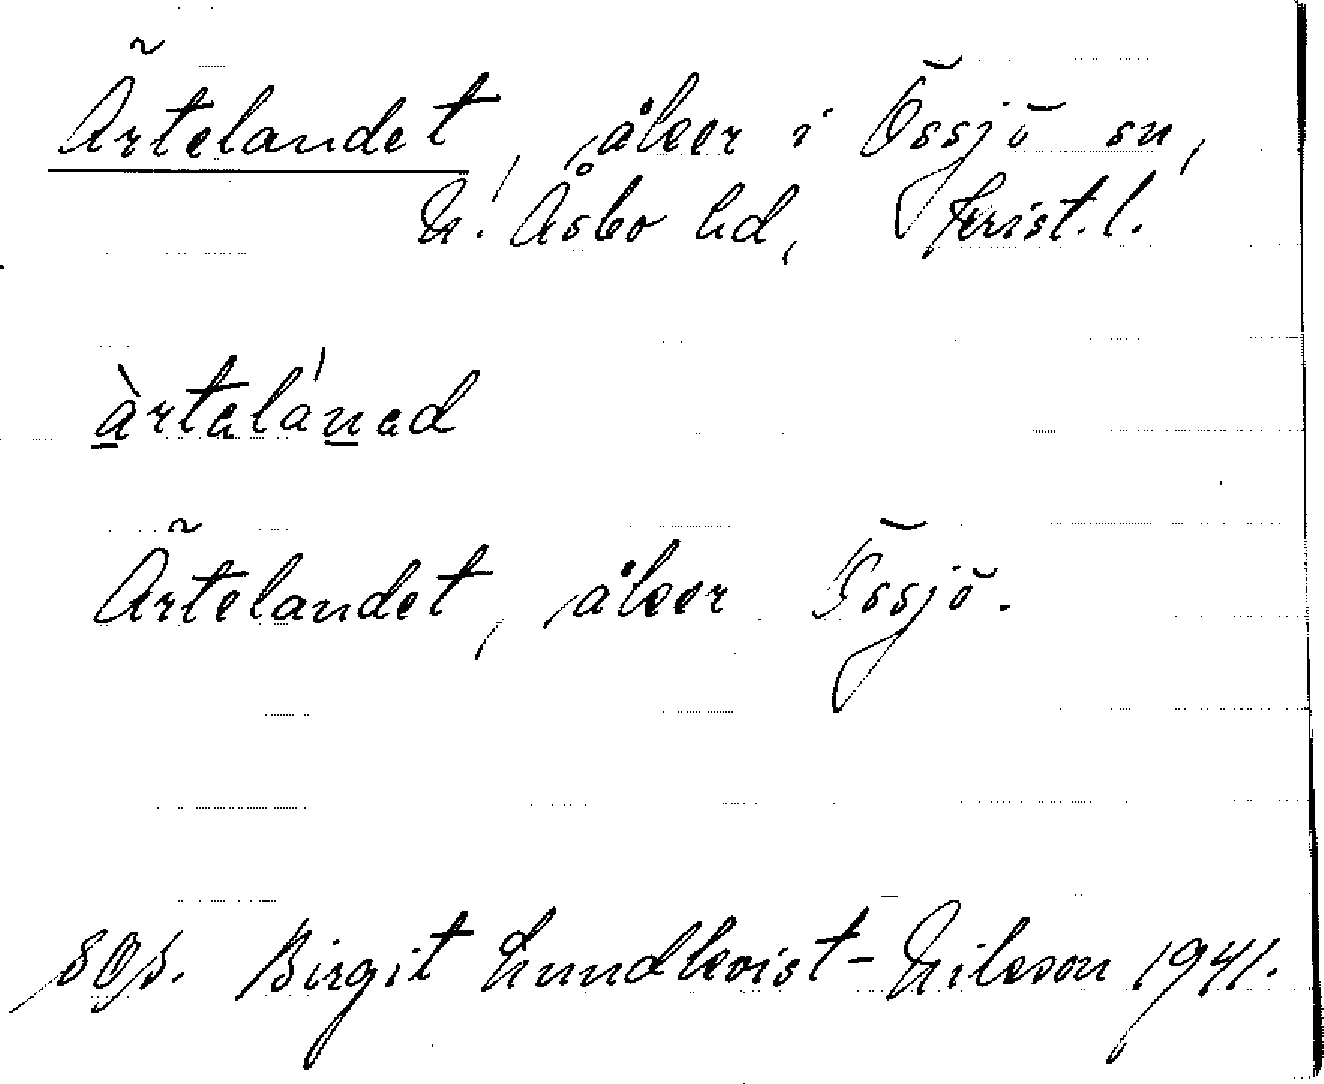 Ärtelandet, åker i Össjö sn,
N. Åsbo hd, Krist. l.
àrtəlánəd
Ärtelandet, åker Össjö.
Birgit Lundkvist-Nilsson 1941.